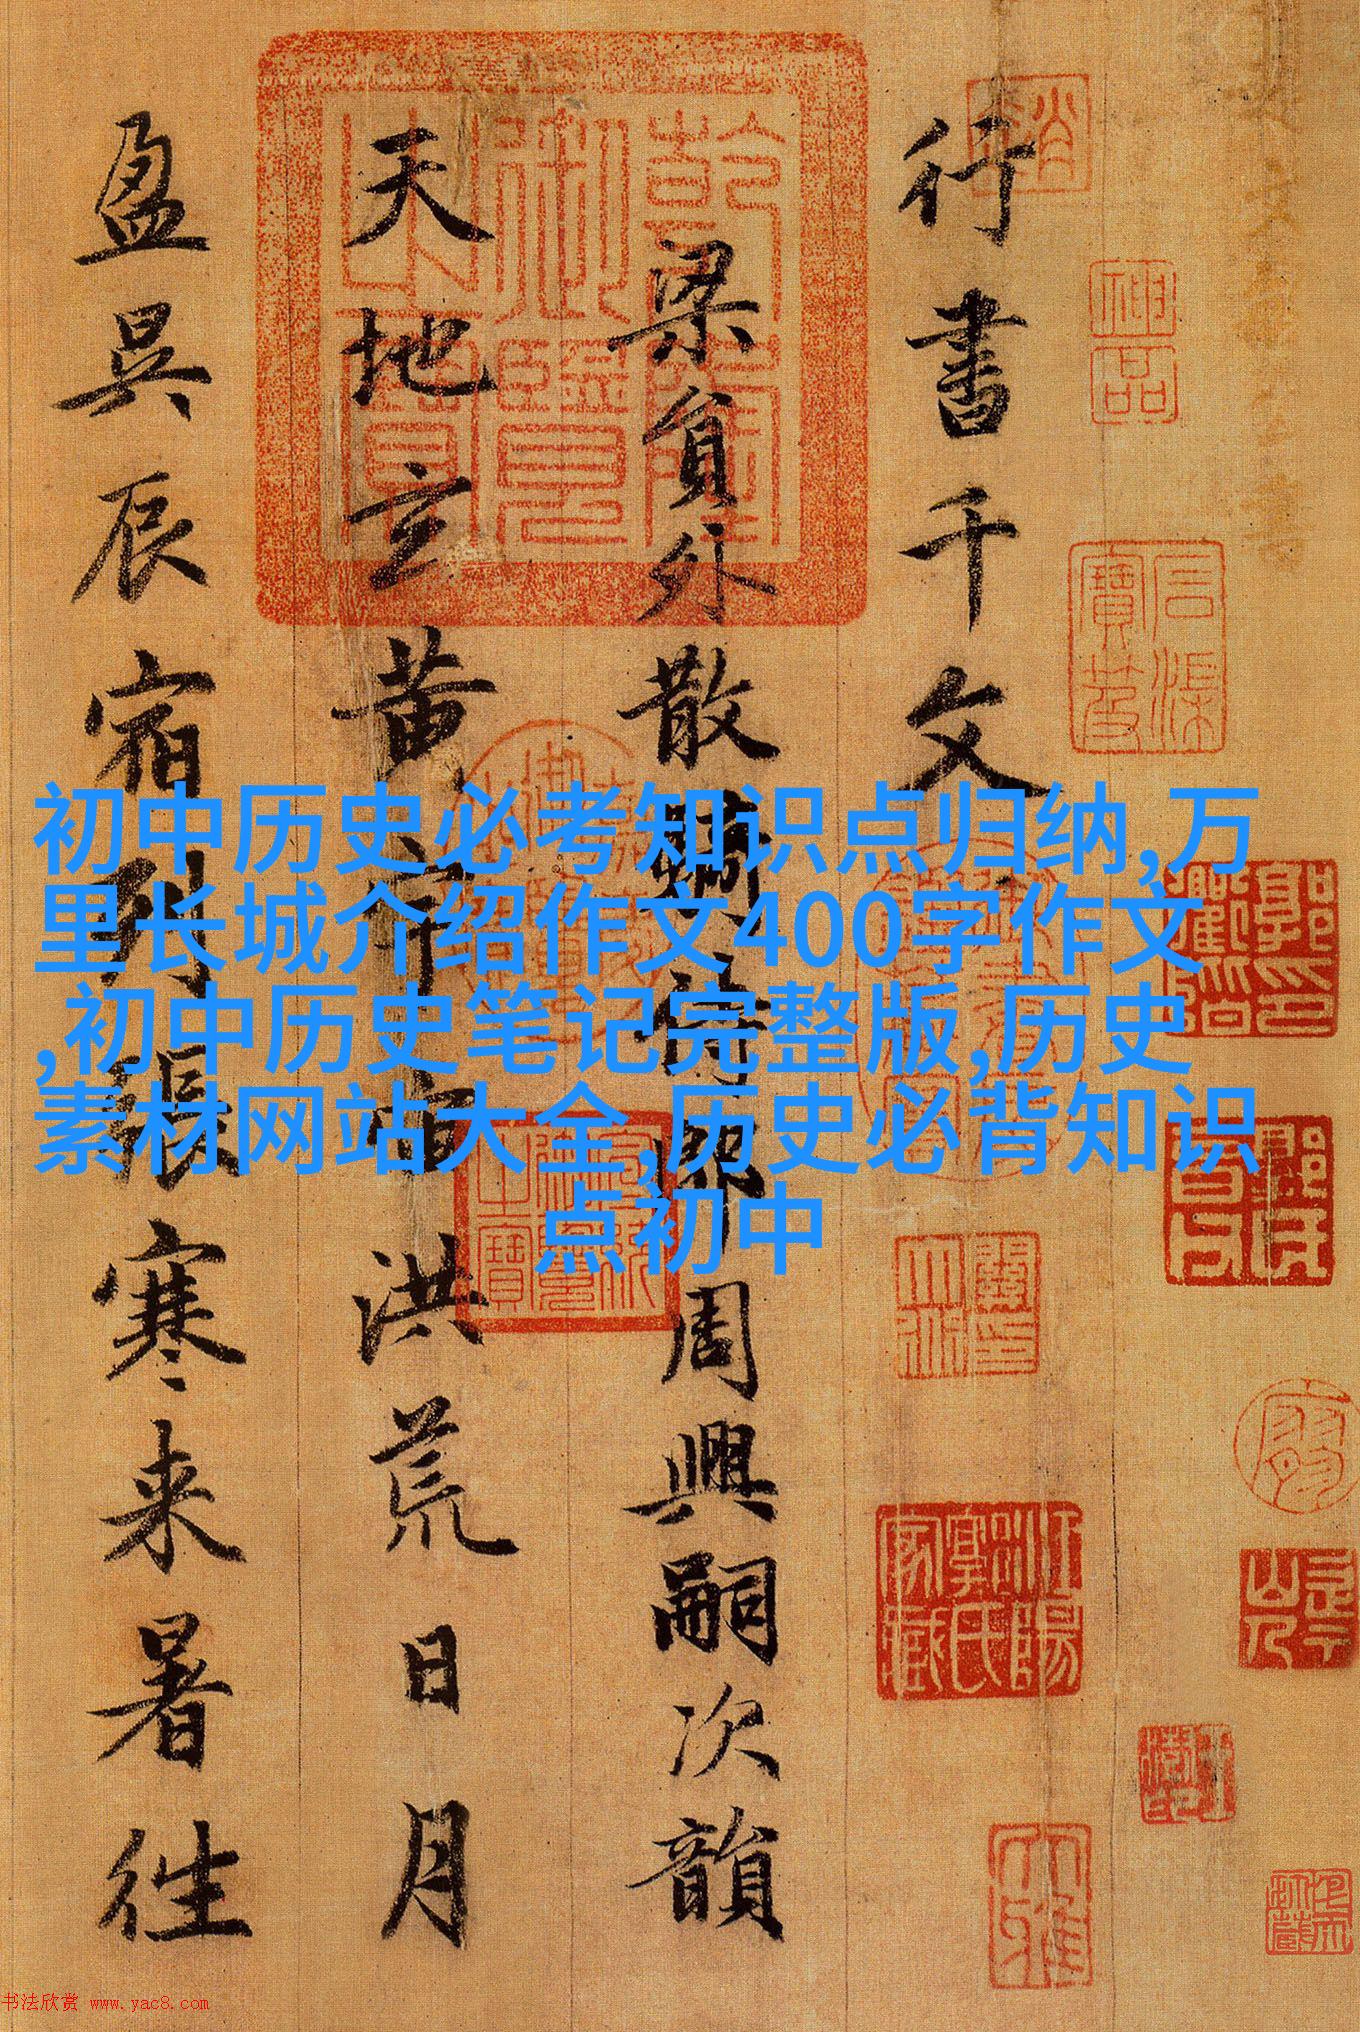 行書千文
梁貟外散騎侍郎周興嗣次韻
天地玄黄宇宙洪荒日月
盈昃辰宿列張寒来暑往
初中历史必考知识点归纳,万
里长城介绍作文400字作文
,初中历史笔记完整版,历史
素材网站大全,历史必背知识
点初中
乾隆御覽之寶
神品
石渠寶笈
宣統御覽之寶
书法欣赏 www.yac8.com